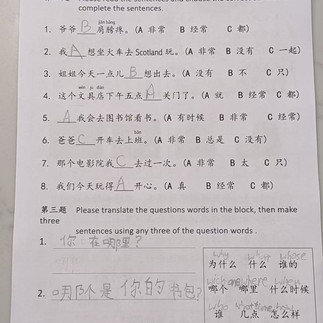 complete the sentences.
jiān bǎng
1. 爷爷 B 肩膀疼。(A 非常 B 经常 C 都)
2. 我 A 想坐火车去 Scotland 玩。(A 非常 B 没有 C 一起)
3. 姐姐今天一点儿 B 想出去。(A 没有 B 不 C 只)
wén jù diàn
4. 这个文具店下午五点 A 关门了。(A 就 B 经常 C 非常)
5. A 我会去图书馆看书。(A 有时候 B 经常 C 非常)
6. 爸爸 C 开车去上班。(A 非常 B 总是 C 没有)
7. 那个电影院我 C 去过一次。(A 非常 B 太 C 只)
8. 我们今天玩得 A 开心。(A 真 B 经常 C 都)
第三题 Please translate the questions words in the block, then make
three
sentences using any three of the question words .
1. 你在哪里？
why what whose
为什么 什么 谁的
2. 哪个是你的书包？
哪个 哪里 什么时候
who
谁 几点 怎么样